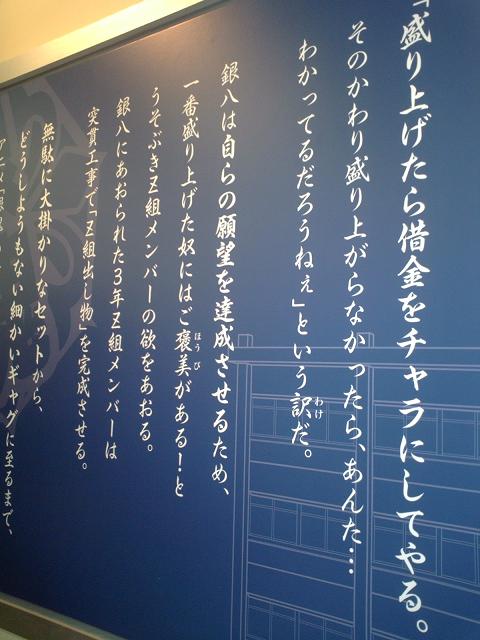 「盛り上げたら借金をチャラにしてやる。
そのかわり盛り上がらなかったら、あんた…
わかってるだろうねぇ」という訳だ。
わけ
銀八は自らの願望を達成させるため、
一番盛り上げた奴にはご褒美がある!と
ほうび
うそぶきZ組メンバーの欲をあおる。
銀八にあおられた3年Z組メンバーは
突貫工事で「Z組出し物」を完成させる。
無駄に大掛かりなセットから、
どうしようもない細かいギャグに至るまで、